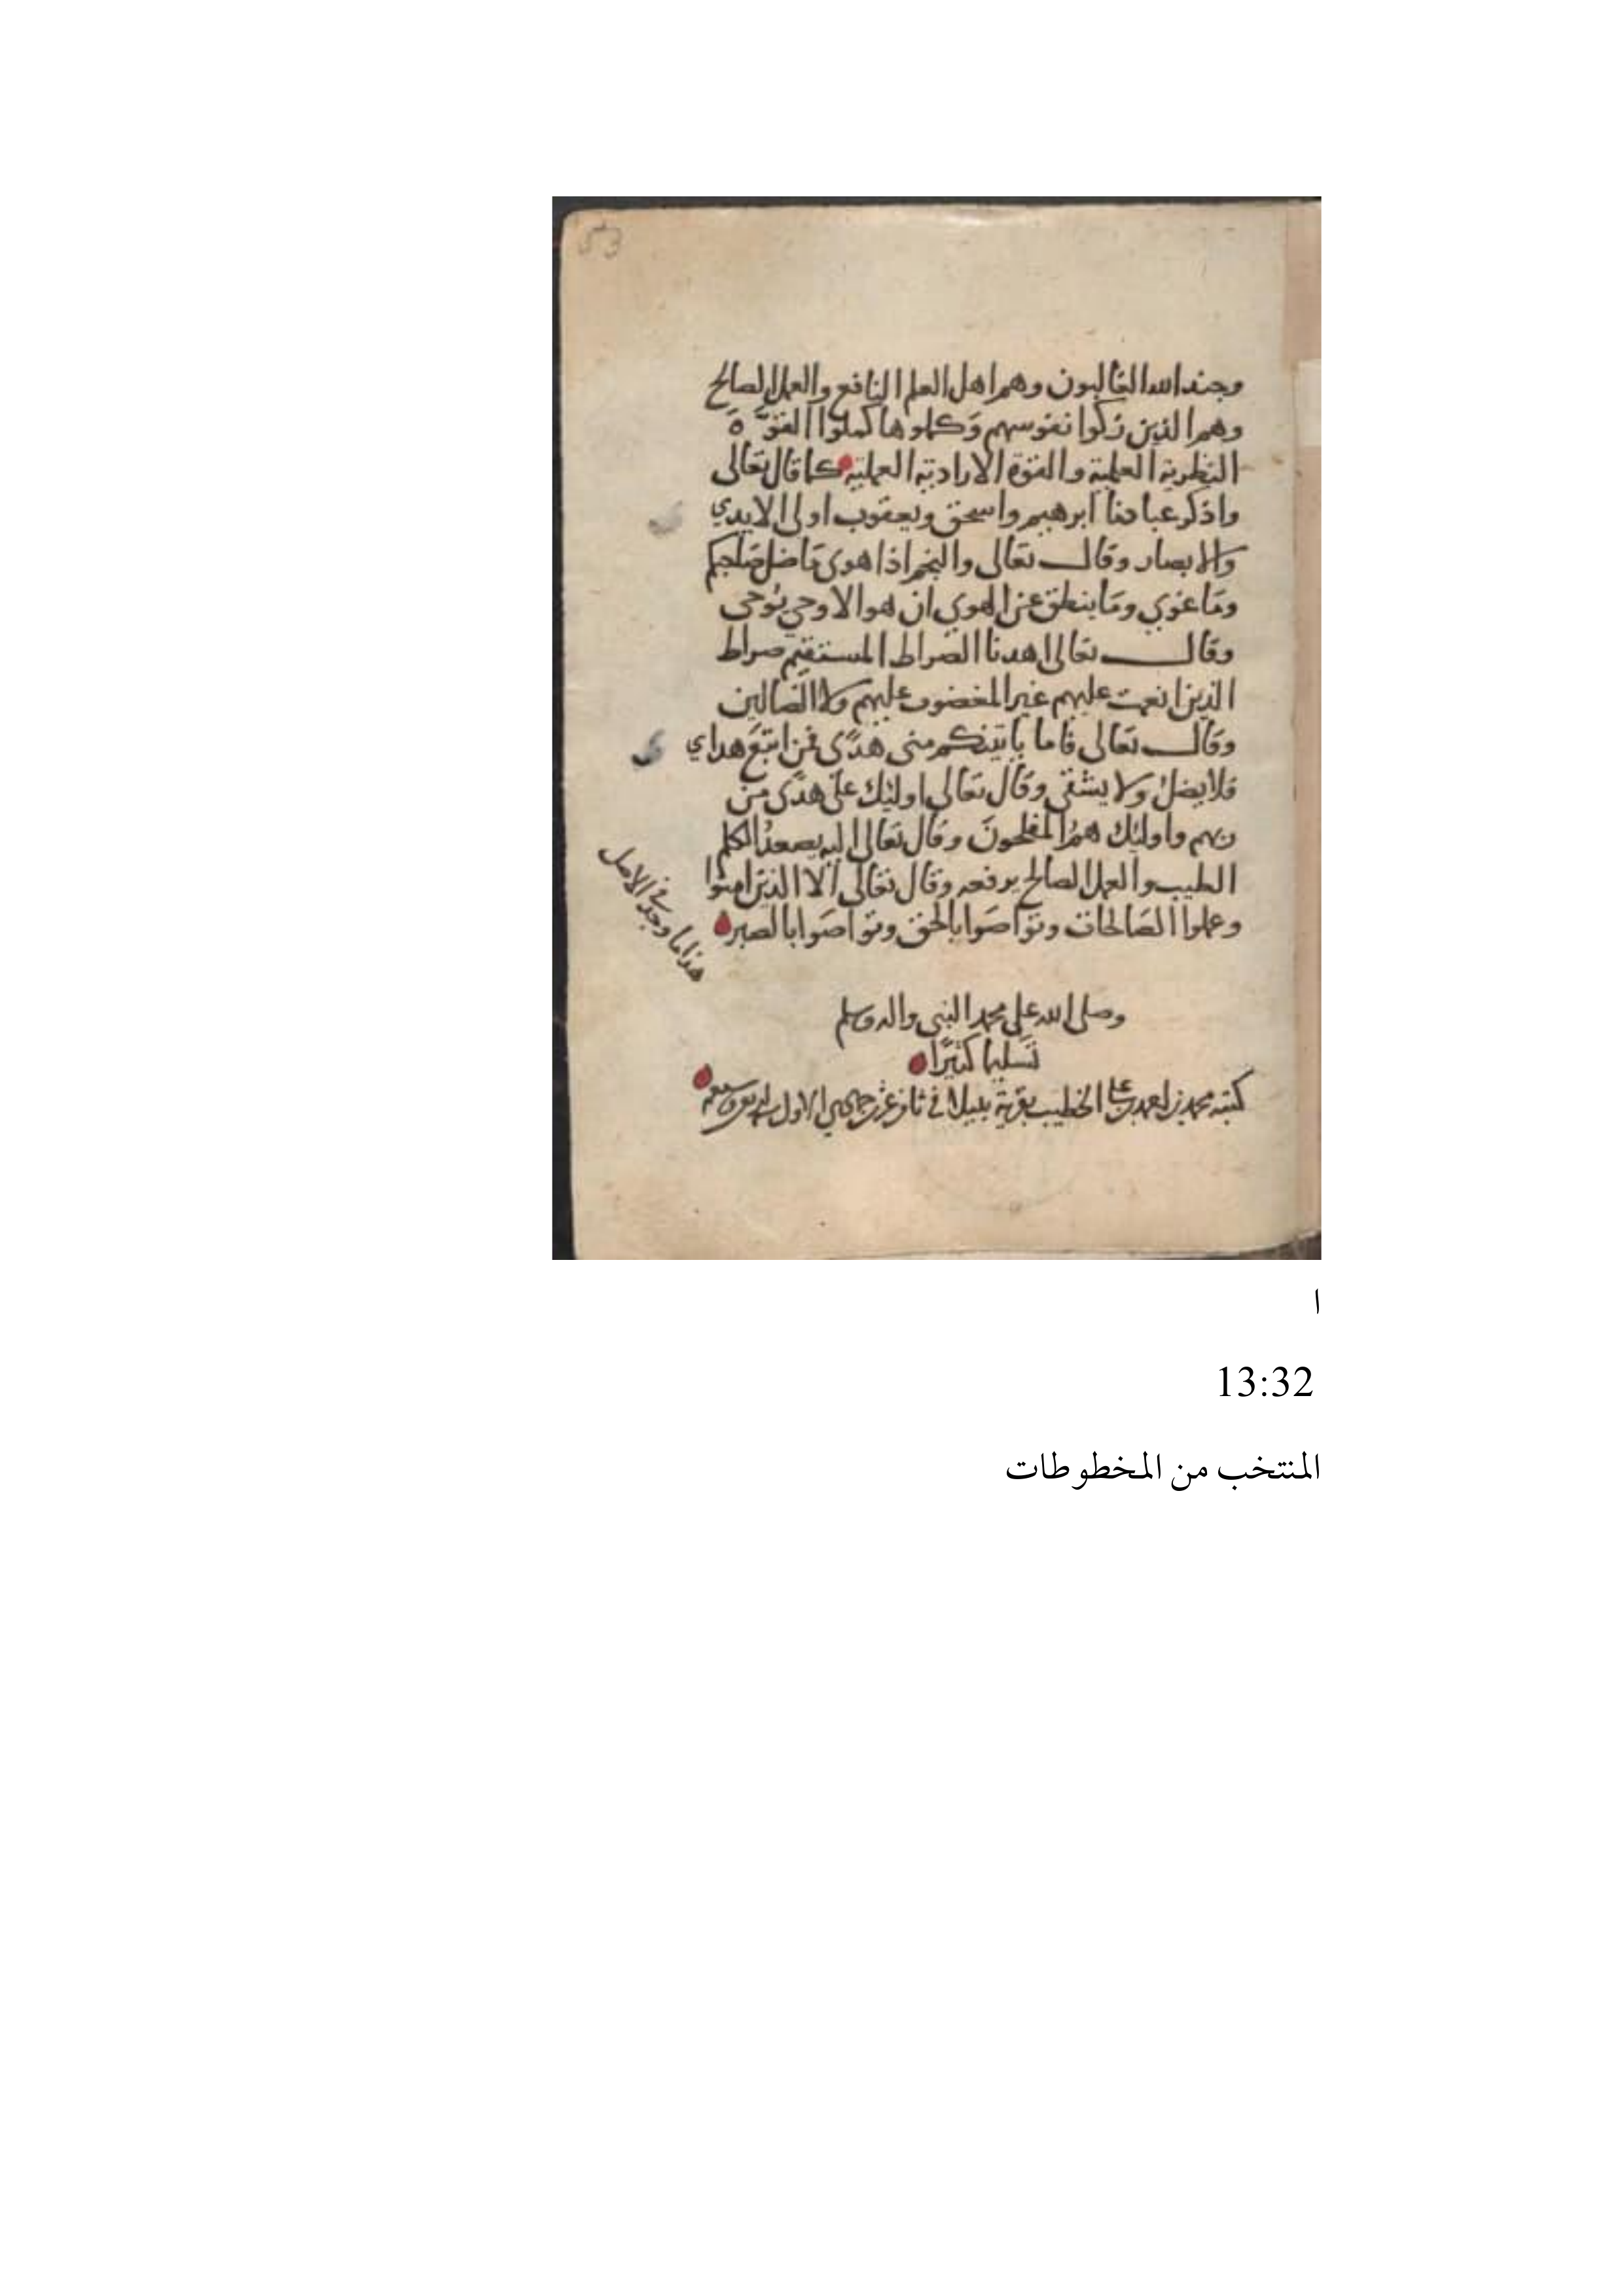 53
وجند الله الغالبون وهم اهل العلم النافع والعمل الصالح
وهم الذين زكوا نفوسهم وكملوها كملوا القوة
النظرية العلمية والقوة الارادية العملية كما قال تعالى
واذكر عبادنا ابرهيم واسحق ويعقوب اولى الايدي
والابصار وقال تعالى والنجم اذا هوى مَا ضل صَاحبكم
ومَا غوي ومَا ينطق عن الهوي ان هو الا وحي يُوحى
وقال تعالى اهدنا الصراط المستقيم صراط
الذين انعمت عليهم غير المغضوب عليهم ولا الضالين
وقال تعالى فاما ياتينكم منى هدًى فمن اتبَع هداي
فلا يضل ولا يشقى وقال تعالى اوليك على هدًى من
ربهم واوليك همُ المفلحونَ وقال تعالى اليه يصعدُ الكلم
الطيب والعمل الصالح يرفعه وقال تعالى الا الذين امنوا
وعملوا الصَالحات وتواصَوا بالحق وتواصَوا بالصبر
هذا ما وجد في الاصل
وصلى الله على محمد النبى واله وسلم
تسليما كثيرًا
كتبه محمد بن احمد بن على الخطيب بقرية في ثاني عشر جمادي الاول سنة
ا
13:32
المنتخب من المخطوطات